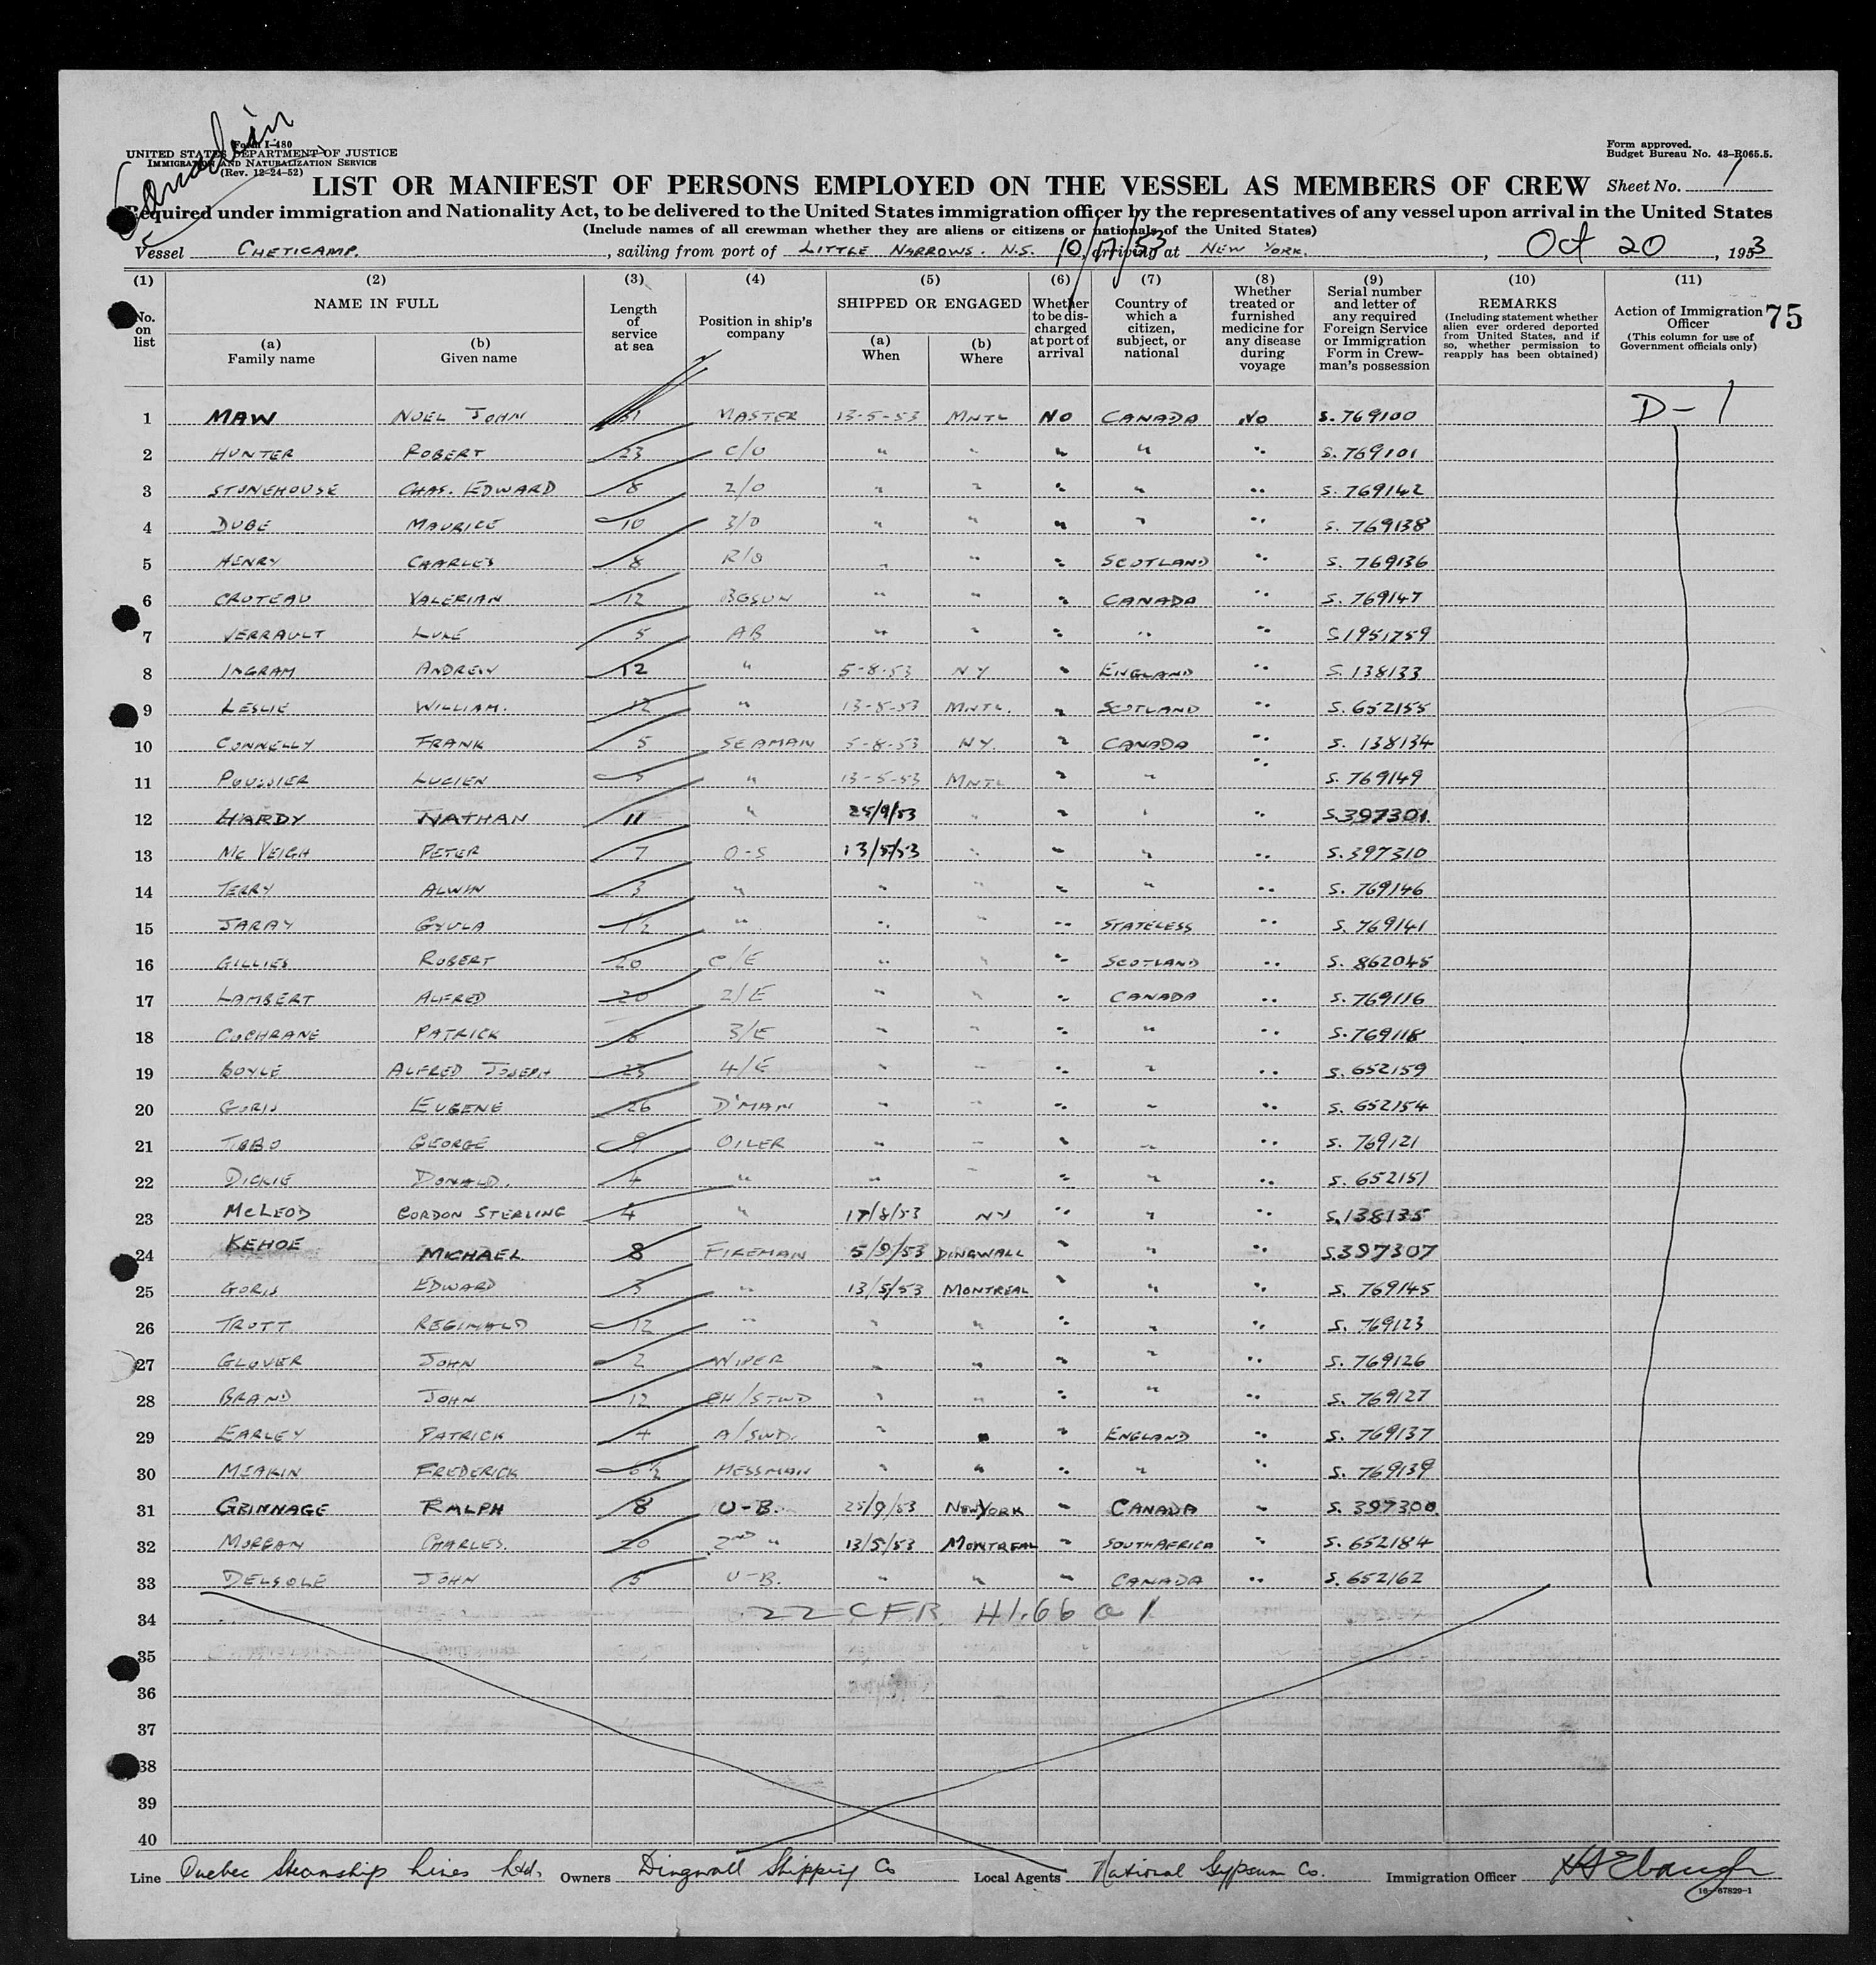 Canadian
Form I-480
UNITED STATES DEPARTMENT OF JUSTICE
IMMIGRATION AND NATURALIZATION SERVICE
(Rev. 12-24-52)
Form approved.
Budget Bureau No. 43-R065.5.
LIST OR MANIFEST OF PERSONS EMPLOYED ON THE VESSEL AS MEMBERS OF CREW Sheet No. 1
Required under immigration and Nationality Act, to be delivered to the United States immigration officer by the representatives of any vessel upon arrival in the United States
(Include names of all crewman whether they are aliens or citizens or nationals of the United States)
Vessel CHETICAMP. , sailing from port of LITTLE NARROWS. N.S. 10/17/53, arriving at NEW YORK. , Oct 20 , 1953
(1) (2) (3) (4) (5) (6) (7) (8) (9) (10) (11)
No. on list
NAME IN FULL
(a) Family name
(b) Given name
Length of service at sea
Position in ship's company
SHIPPED OR ENGAGED
(a) When
(b) Where
Whether to be discharged at port of arrival
Country of which a citizen, subject, or national
Whether treated or furnished medicine for any disease during voyage
Serial number and letter of any required Foreign Service or Immigration Form in Crewman's possession
REMARKS
(Including statement whether alien ever ordered deported from United States, and if so, whether permission to reapply has been obtained)
Action of Immigration Officer
(This column for use of Government officials only)
75
1 MAW NOEL JOHN 31 MASTER 13-5-53 MNTL NO CANADA NO S. 769100 D-1
2 HUNTER ROBERT 23 C/O " " " " " S. 769101
3 STONEHOUSE CHAS. EDWARD 8 2/O " " " " " S. 769142
4 DUBE MAURICE 10 3/O " " " " " S. 769138
5 HENRY CHARLES 8 R/O " " " SCOTLAND " S. 769136
6 CROTEAU VALERIAN 12 BOSUN " " " CANADA " S. 769147
7 VERRAULT LUKE 5 AB " " " " " S.1951759
8 INGRAM ANDREW 12 " 5-8-53 NY " ENGLAND " S. 138133
9 LESLIE WILLIAM. 12 " 13-5-53 MNTL. " SCOTLAND " S. 652155
10 CONNELLY FRANK 5 SEAMAN 5-8-53 NY. " CANADA " S. 138134
11 LUCIEN 3 " 13-5-53 MNTL " " " S. 769149
12 HARDY NATHAN 11 " 25/9/53 " " " " S.397301.
13 MC VEIGH PETER 7 O-S 13/5/53 " " " " S.397310
14 TERRY ALWIN 3 " " " " " " S. 769146
15 JARAY GYULA 1½ " " " " STATELESS " S. 769141
16 GILLIES ROBERT 20 C/E " " " SCOTLAND " S. 862045
17 LAMBERT ALFRED 20 2/E " " " CANADA " S. 769116
18 COCHRANE PATRICK 6 3/E " " " " " S. 769118
19 BOYLE ALFRED JOSEPH 23 4/E " " " " " S. 652159
20 GORIS EUGENE 26 D'MAN " " " " " S. 652154
21 GEORGE 9 OILER " " " " " S. 769121
22 DICKIE DONALD. 4 " " " " " " S. 652151
23 MCLEOD GORDON STERLING 4 " 17/8/53 NY " " " S.138135
24 KEHOE MICHAEL 8 FIREMAN 5/9/53 DINGWALL " " " S.397307
25 GORIS EDWARD 3 " 13/5/53 MONTREAL " " " S. 769145
26 TROTT REGINALD 12 " " " " " " S. 769123
27 GLOVER JOHN 2 WIPER " " " " " S. 769126
28 BRAND JOHN 12 CH/STWD " " " " " S. 769127
29 EARLEY PATRICK 4 A/SWD. " " " ENGLAND " S. 769137
30 MEAKIN FREDERICK 6½ MESSMAN " " " " " S. 769139
31 GRINNAGE RALPH 8 U-B. 25/9/53 NEW YORK " CANADA " S. 397300.
32 MORGAN CHARLES. 20 2ND " 13/5/53 MONTREAL " SOUTH AFRICA " S. 652184
33 DELSOLE JOHN 5 U-B. " " " CANADA " S. 652162
34 22 CFR 41.66 a 1
35
36
37
38
39
40
Line Quebec Steamship Lines Ltd. Owners Dingwall Shipping Co Local Agents National Gypsum Co. Immigration Officer HS Ebaugh
16-67829-1